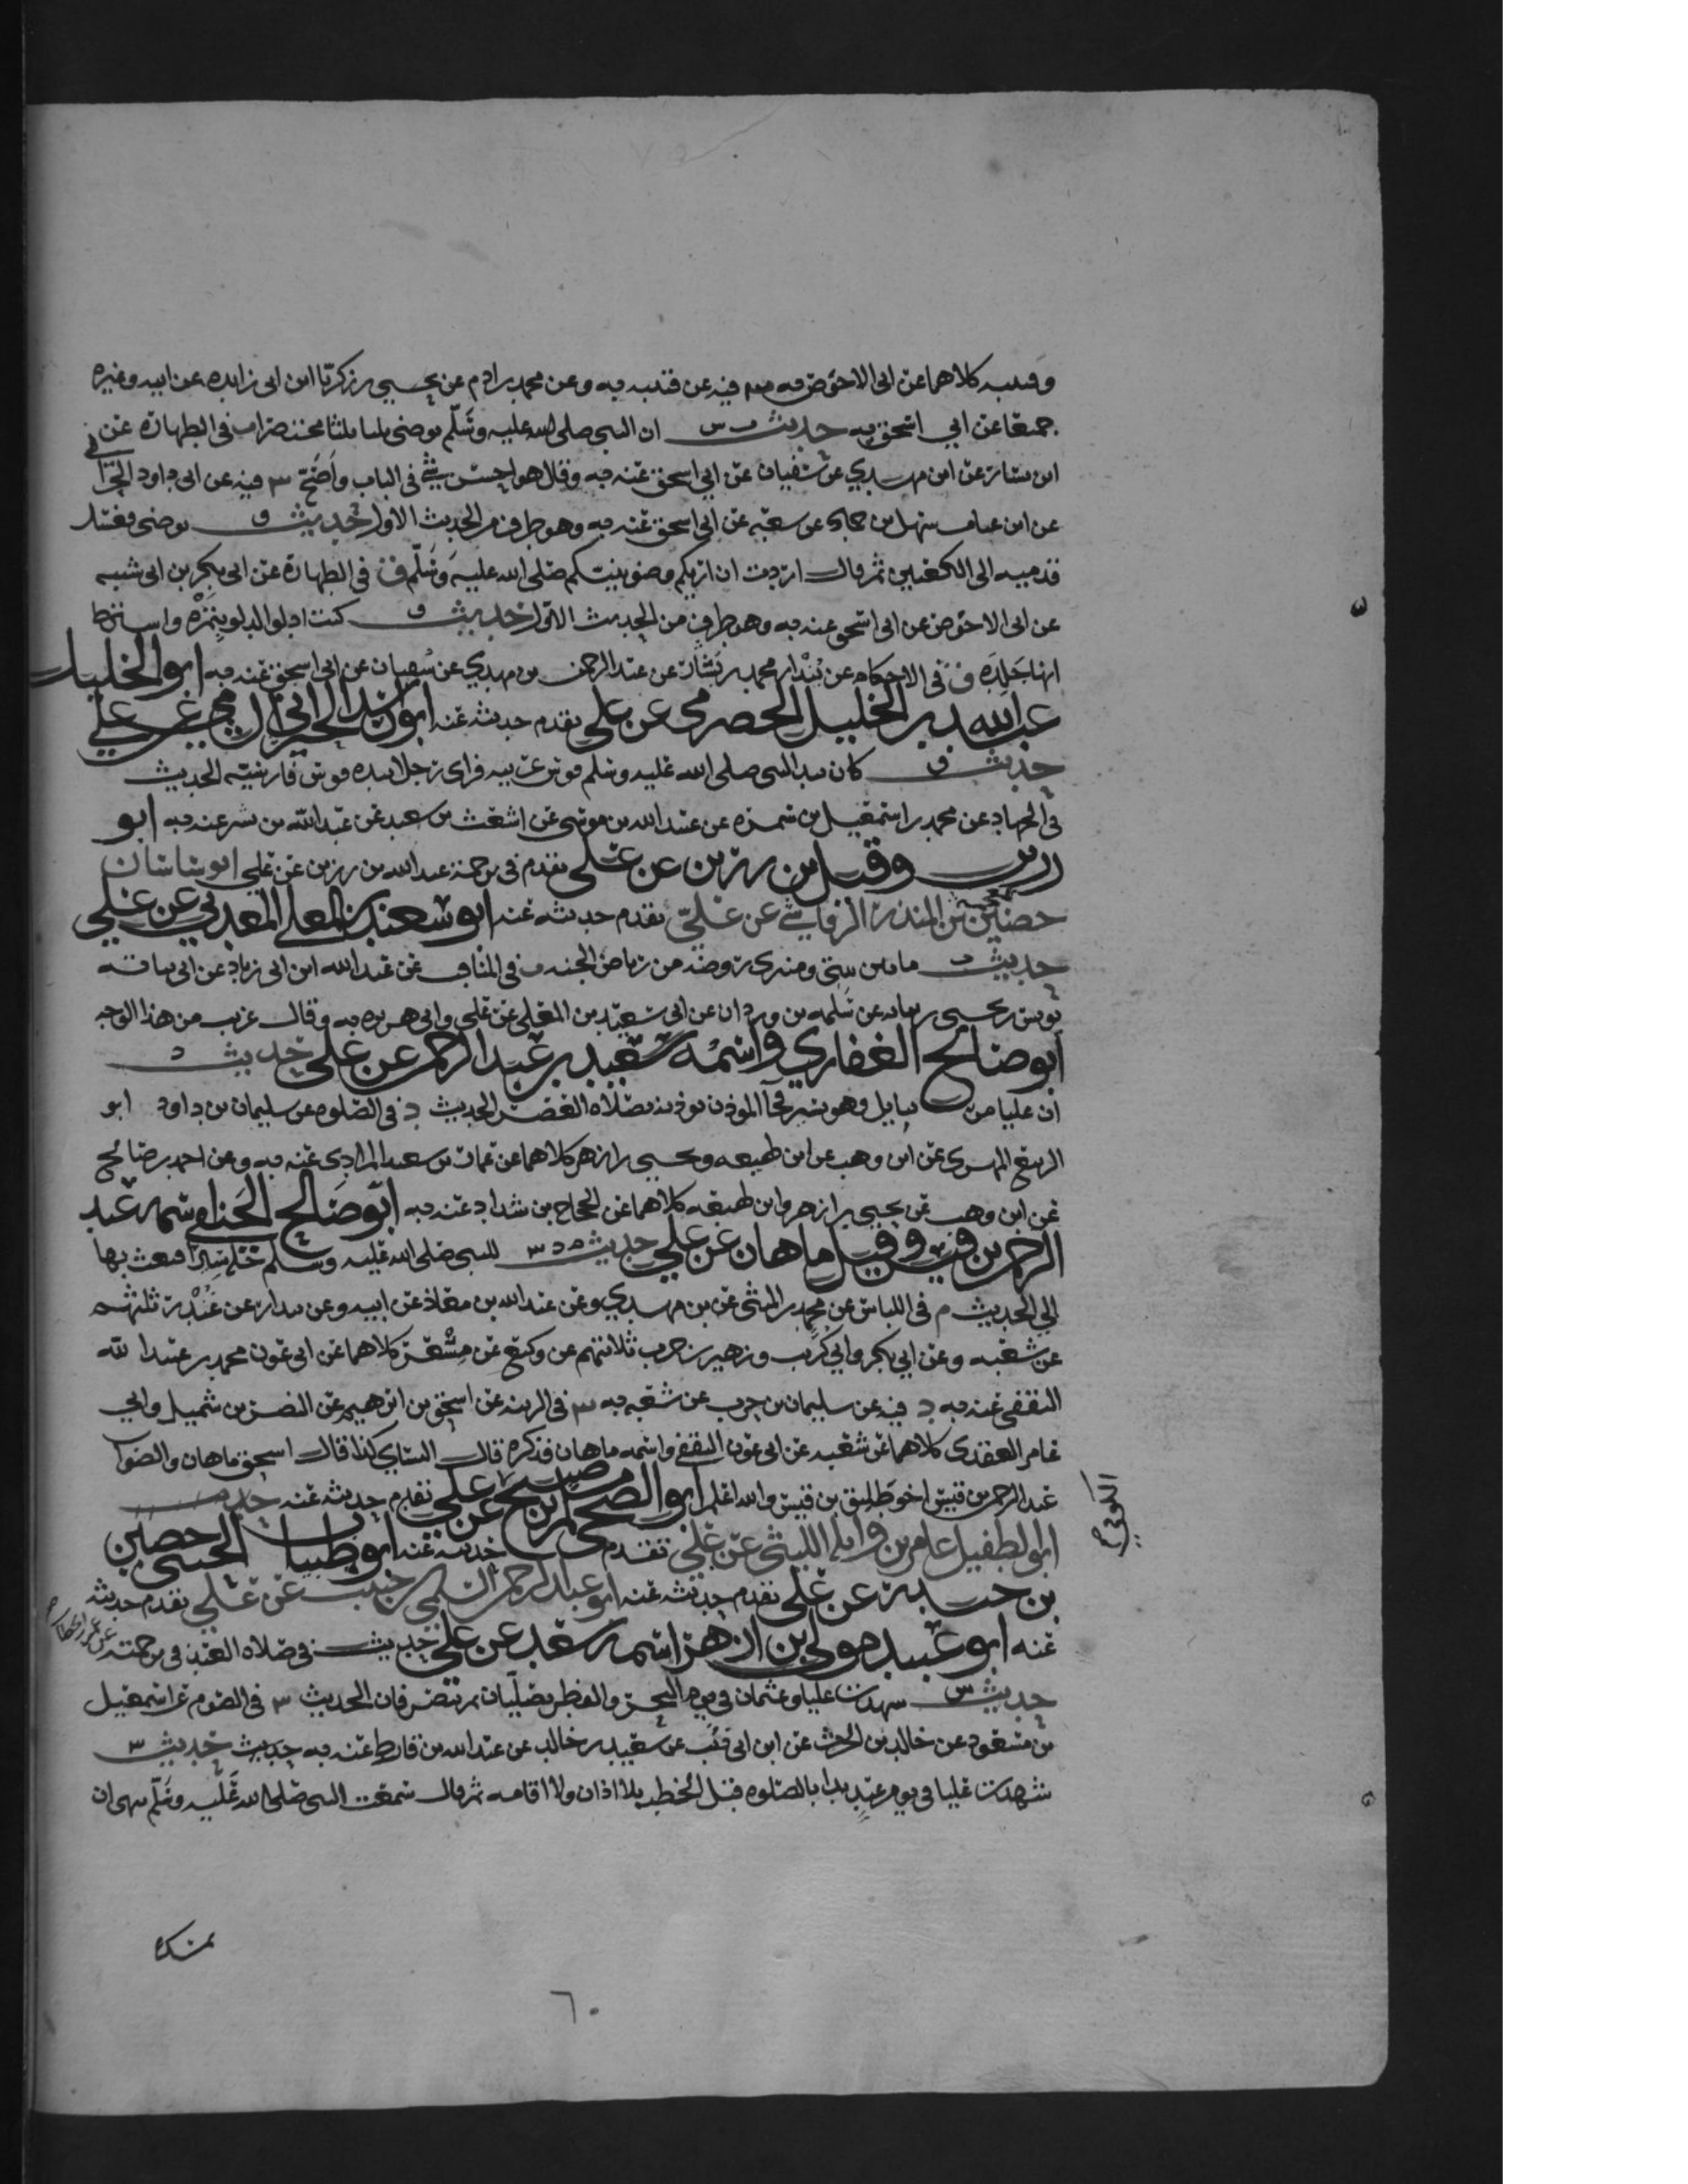 وقتيبه كلاهما عن ابى الاحوص به س فيه عن قتيبه به وعن محمد بن ادم عن يحيى بن زكريا ابن ابى زايده عن ابيه وغيره
جميعا عن ابي اسحق به حديث ت س ان النبى صلى الله عليه وسلم توضى ثلثا ثلثا مختصرا ت فى الطهارة عن
ابن بشار عن ابن مهدي عن سفيان عن ابي اسحق عنه به وقال هو احسن شئ فى الباب واصح س فيه عن ابى داود الحرانى
عن ابن عتاب سهل بن حماد عن شعبة عن ابي اسحق عنه به وهو طرف من الحديث الاول حديث ق توضى فغسل
قدميه الى الكعبين ثم قال اردت ان اريكم وضو نبيكم صلى الله عليه وسلم ق فى الطهارة عن ابى بكر بن ابى شيبه
عن ابى الاحوص عن ابى اسحق عنه به وهو طرف من الحديث الاول حديث ق كنت ادلو الدلو بتمره واشترط
انها جلده ق فى الاحكام عن بندار محمد بن بشار عن عبد الرحمن بن مهدي عن سفيان عن ابى اسحق عنه به ابو الخليل
عبد الله بن الخليل الحضرمى عن على تقدم حديثه عنه ابو راشد الحبراني عن علي
حديث ق كان بيد النبى صلى الله عليه وسلم قوس عربيه فراى رجلا بيده قوس فارسية الحديث
فى الجهاد عن محمد بن اسمعيل بن سمره عن عبيد الله بن موسى عن اشعث بن سعيد عن عبد الله بن بسر عنه به ابو
زرير وقيل بن رزين عن على تقدم فى ترجمة عبد الله بن رزين عن على ابو ساسان
حضين بن المنذر الرقاشي عن علي تقدم حديثه عنه ابو سعيد بن المعلى المدني عن علي
حديث ت ما بين بيتى ومنبرى روضه من رياض الجنه ت فى المناقب عن عبد الله ابن ابى زياد عن ابى نباته
يونس بن يحيى بن نباته عن سلمه بن وردان عن ابى سعيد بن المعلى عن على وابى هريره به وقال غريب من هذا الوجه
ابو صالح الغفاري واسمه سعيد بن عبد الرحمن عن علي حديث د
ان عليا مر ببابل وهو يسير فجآ الموذن يوذنه بصلاه العصر الحديث د فى الصلوه عن سليمان بن داود ابو
الربيع المهرى عن ابن وهب عن ابن لهيعه ويحيى بن ازهر كلاهما عن عمار بن سعد المرادى عنه به وعن احمد بن صالح
عن ابن وهب عن يحيى بن ازهر وابن لهيعه كلاهما عن الحجاج بن شداد عنه به ابو صالح الحنفي اسمه عبد
الرحمن بن قيس وقيل ماهان عن علي حديث م د س للنبى صلى الله عليه وسلم حلة سيرا فبعث بها
الي الحديث م فى اللباس عن محمد بن المثنى عن بن مهدي وعن عبيد الله بن معاذ عن ابيه وعن بندار عن غندر ثلثتهم
عن شعبه وعن ابي بكر وابي كريب وزهير بن حرب ثلاثتهم عن وكيع عن مسعر كلاهما عن ابى عون محمد بن عبيد الله
الثقفى عنه به د فيه عن سليمان بن حرب عن شعبه به س فى الزينه عن اسحق بن ابرهيم عن النضر بن شميل وابي
عامر العقدى كلاهما عن شعبه عن ابى عون الثقفى واسمه ماهان فذكره قال النساي كذا قال اسحق ماهان والصواب
عبد الرحمن بن قيس اخو طليق بن قيس والله اعلم ابو الضحى مسلم بن صبيح عن علي تقدم حديثه عنه
ابو الطفيل عامر بن واثله الليثى عن علي تقدم حديثه عنه ابو ظبيان الجنبى حصين
بن جندب عن على تقدم حديثه عنه ابو عبد الرحمن السلمى بن حبيب عن علي تقدم حديثه
عنه ابو عبيد مولى بن ازهر اسمه سعد عن على حديث فى صلاه العيد فى ترجمته عن عمر بن الخطاب
حديث س شهدت عليا وعثمان فى يوم النحر والفطر يصليان ثم ينصرفان الحديث س فى الصوم عن اسمعيل
بن مسعود عن خالد بن الحرث عن ابن ابى ذئب عن سعيد بن خالد عن عبد الله بن قارظ عنه به حديث حديث س
شهدت عليا فى يوم عيد بدا بالصلوه قبل الخطبه بلا اذان ولا اقامه ثم قال سمعت النبى صلى الله عليه وسلم نهى ان
٦٠